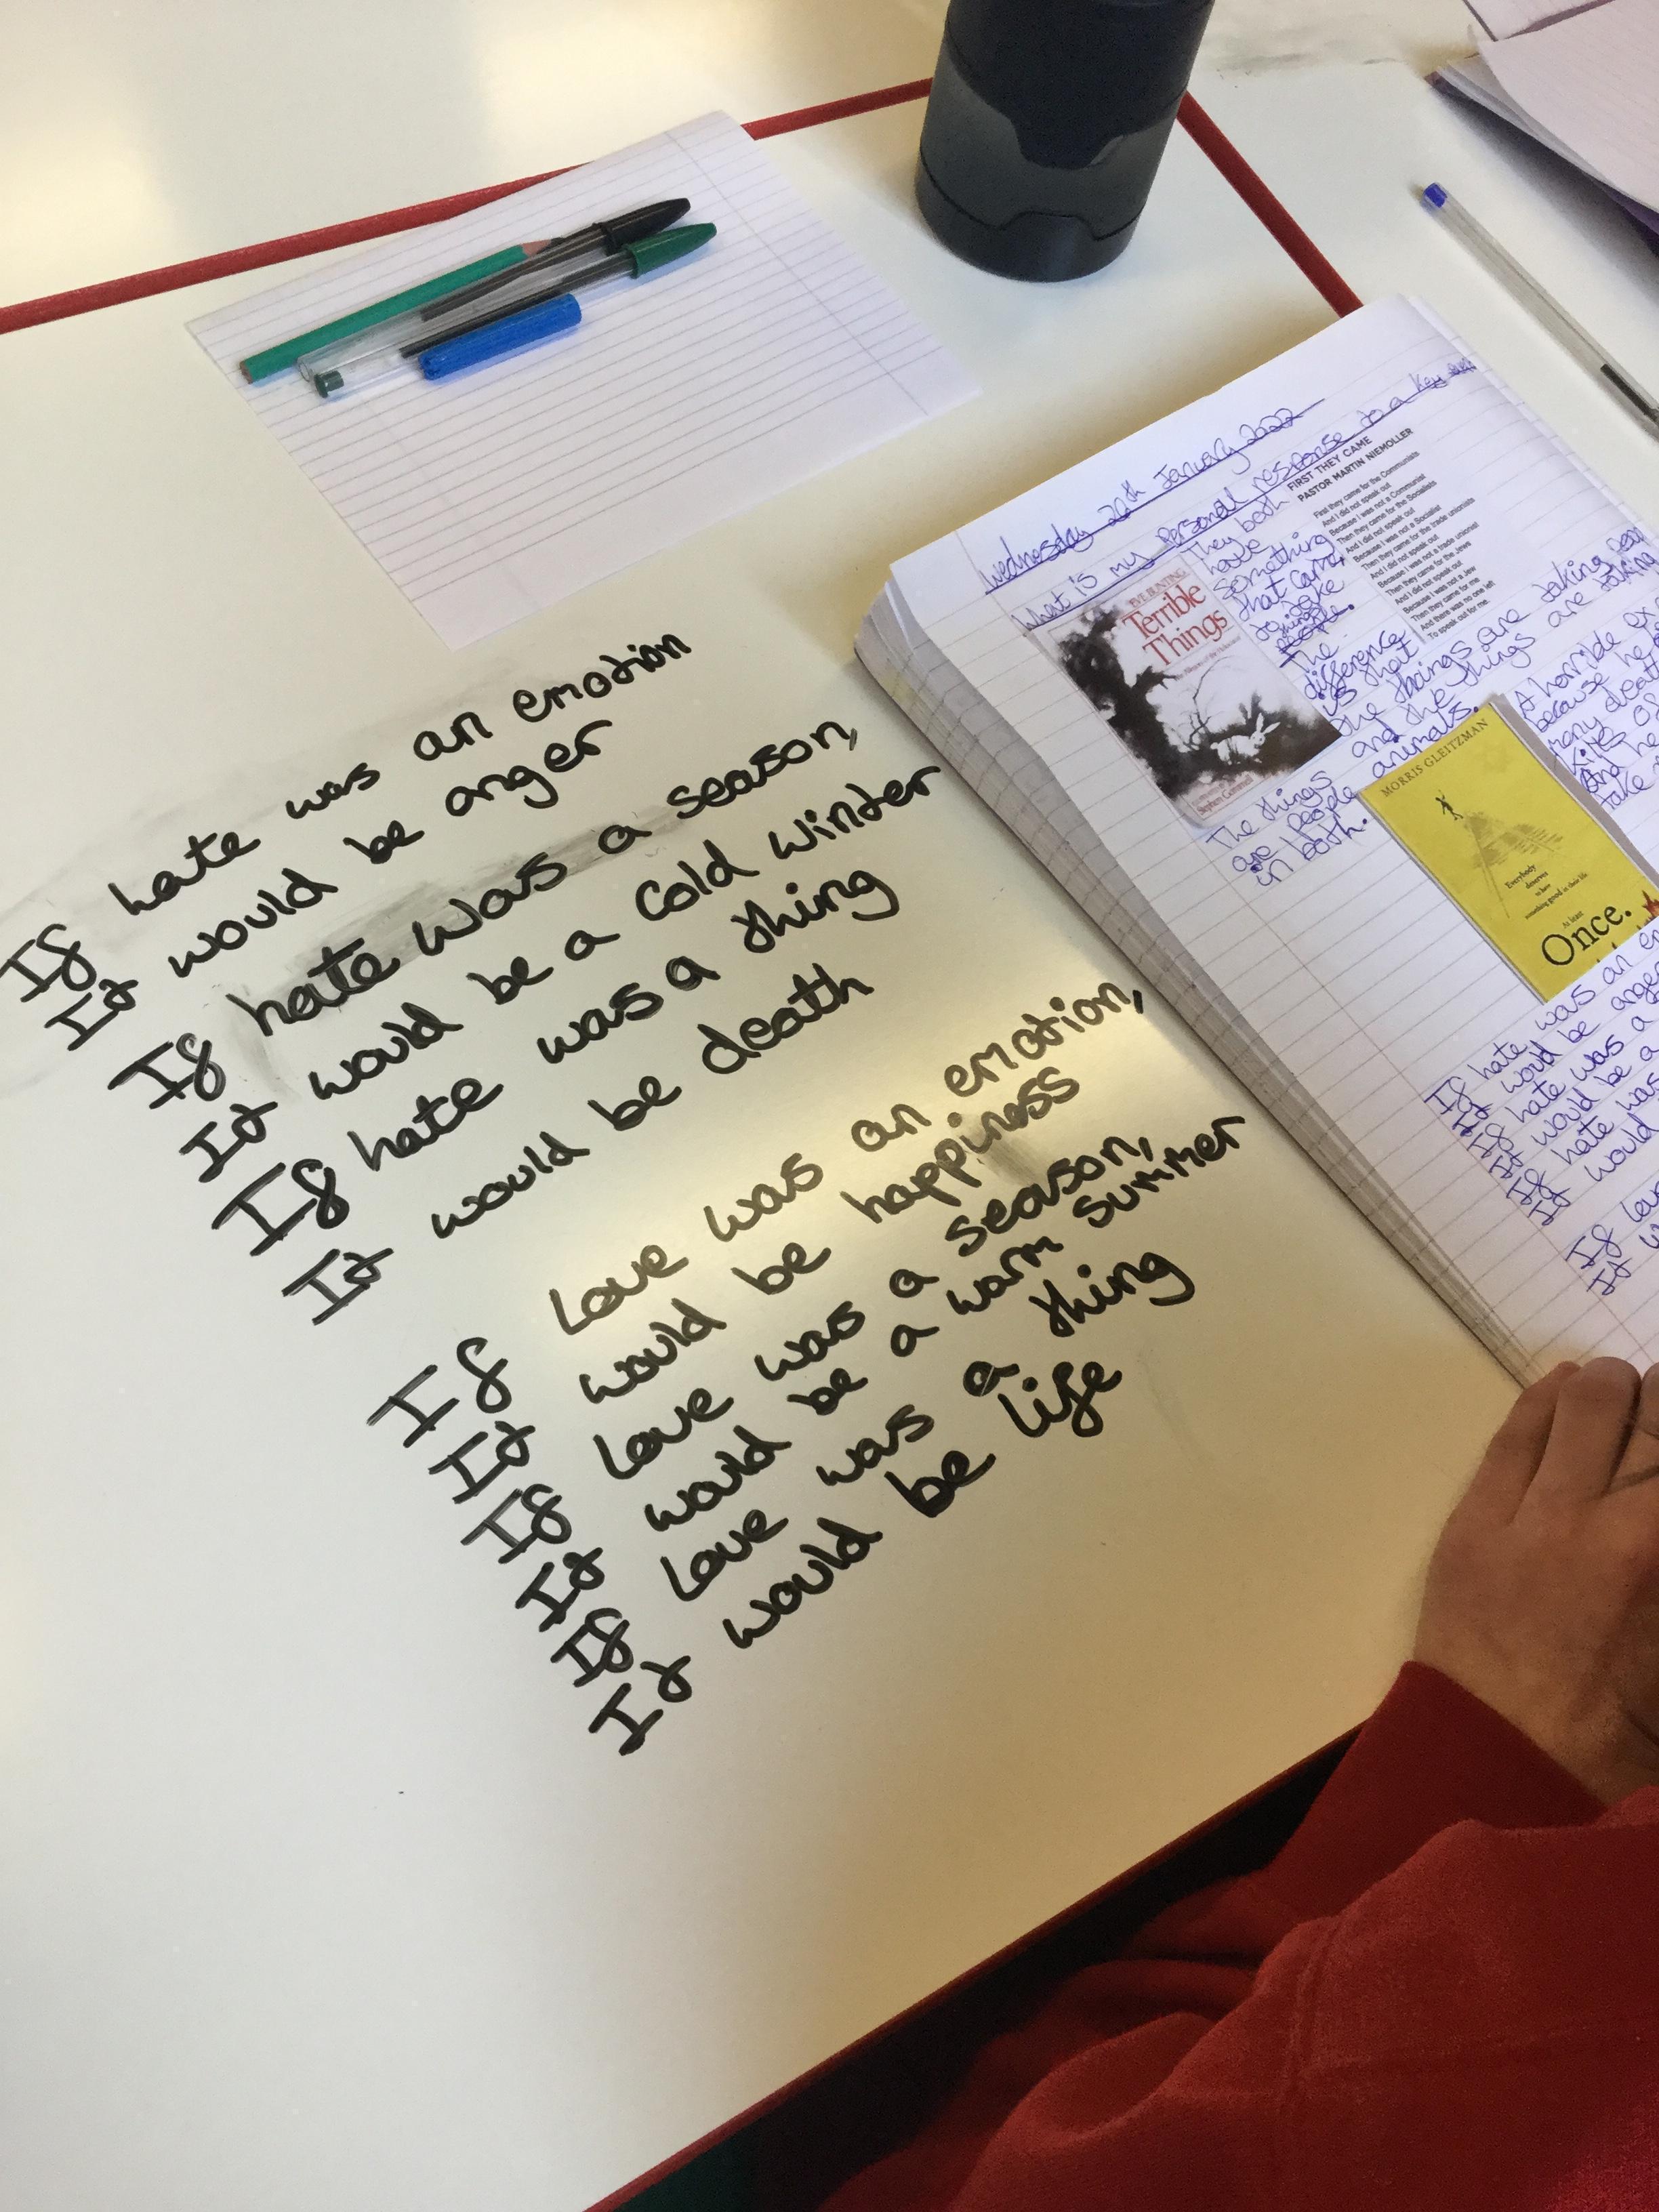 If hate was an emotion
It would be anger
If hate was a season,
It would be a cold winter
If hate was a thing
It would be death
If love was an emotion,
It would be happiness
If love was a season,
It would be a warm summer
If love was a thing
It would be life
Wednesday January 2022
What is my personal response to a key
FIRST THEY CAME
PASTOR MARTIN NIEMOLLER
First they came for the Communists
And I did not speak out
Because I was not a Communist
Then they came for the Socialists
And I did not speak out
Because I was not a Socialist
Then they came for the trade unionists
And I did not speak out
Because I was not a trade unionist
Then they came for the Jews
And I did not speak out
Because I was not a Jew
Then they came for me
And there was no one left
To speak out for me.
They both
have
something
that came
to take
people.
The
difference
is that
the things are taking
and the things are taking
animals.
The things
are people
in both.
EVE BUNTING
Terrible
Things
Stephen Gammell
A horrible
because he
many death
kites of
And he
take
MORRIS GLEITZMAN
Everybody
deserves
to have
something good in their life.
At least
Once.
If hate was an
It would be anger
If hate was a
It would be a
If hate was
It would
If love
It